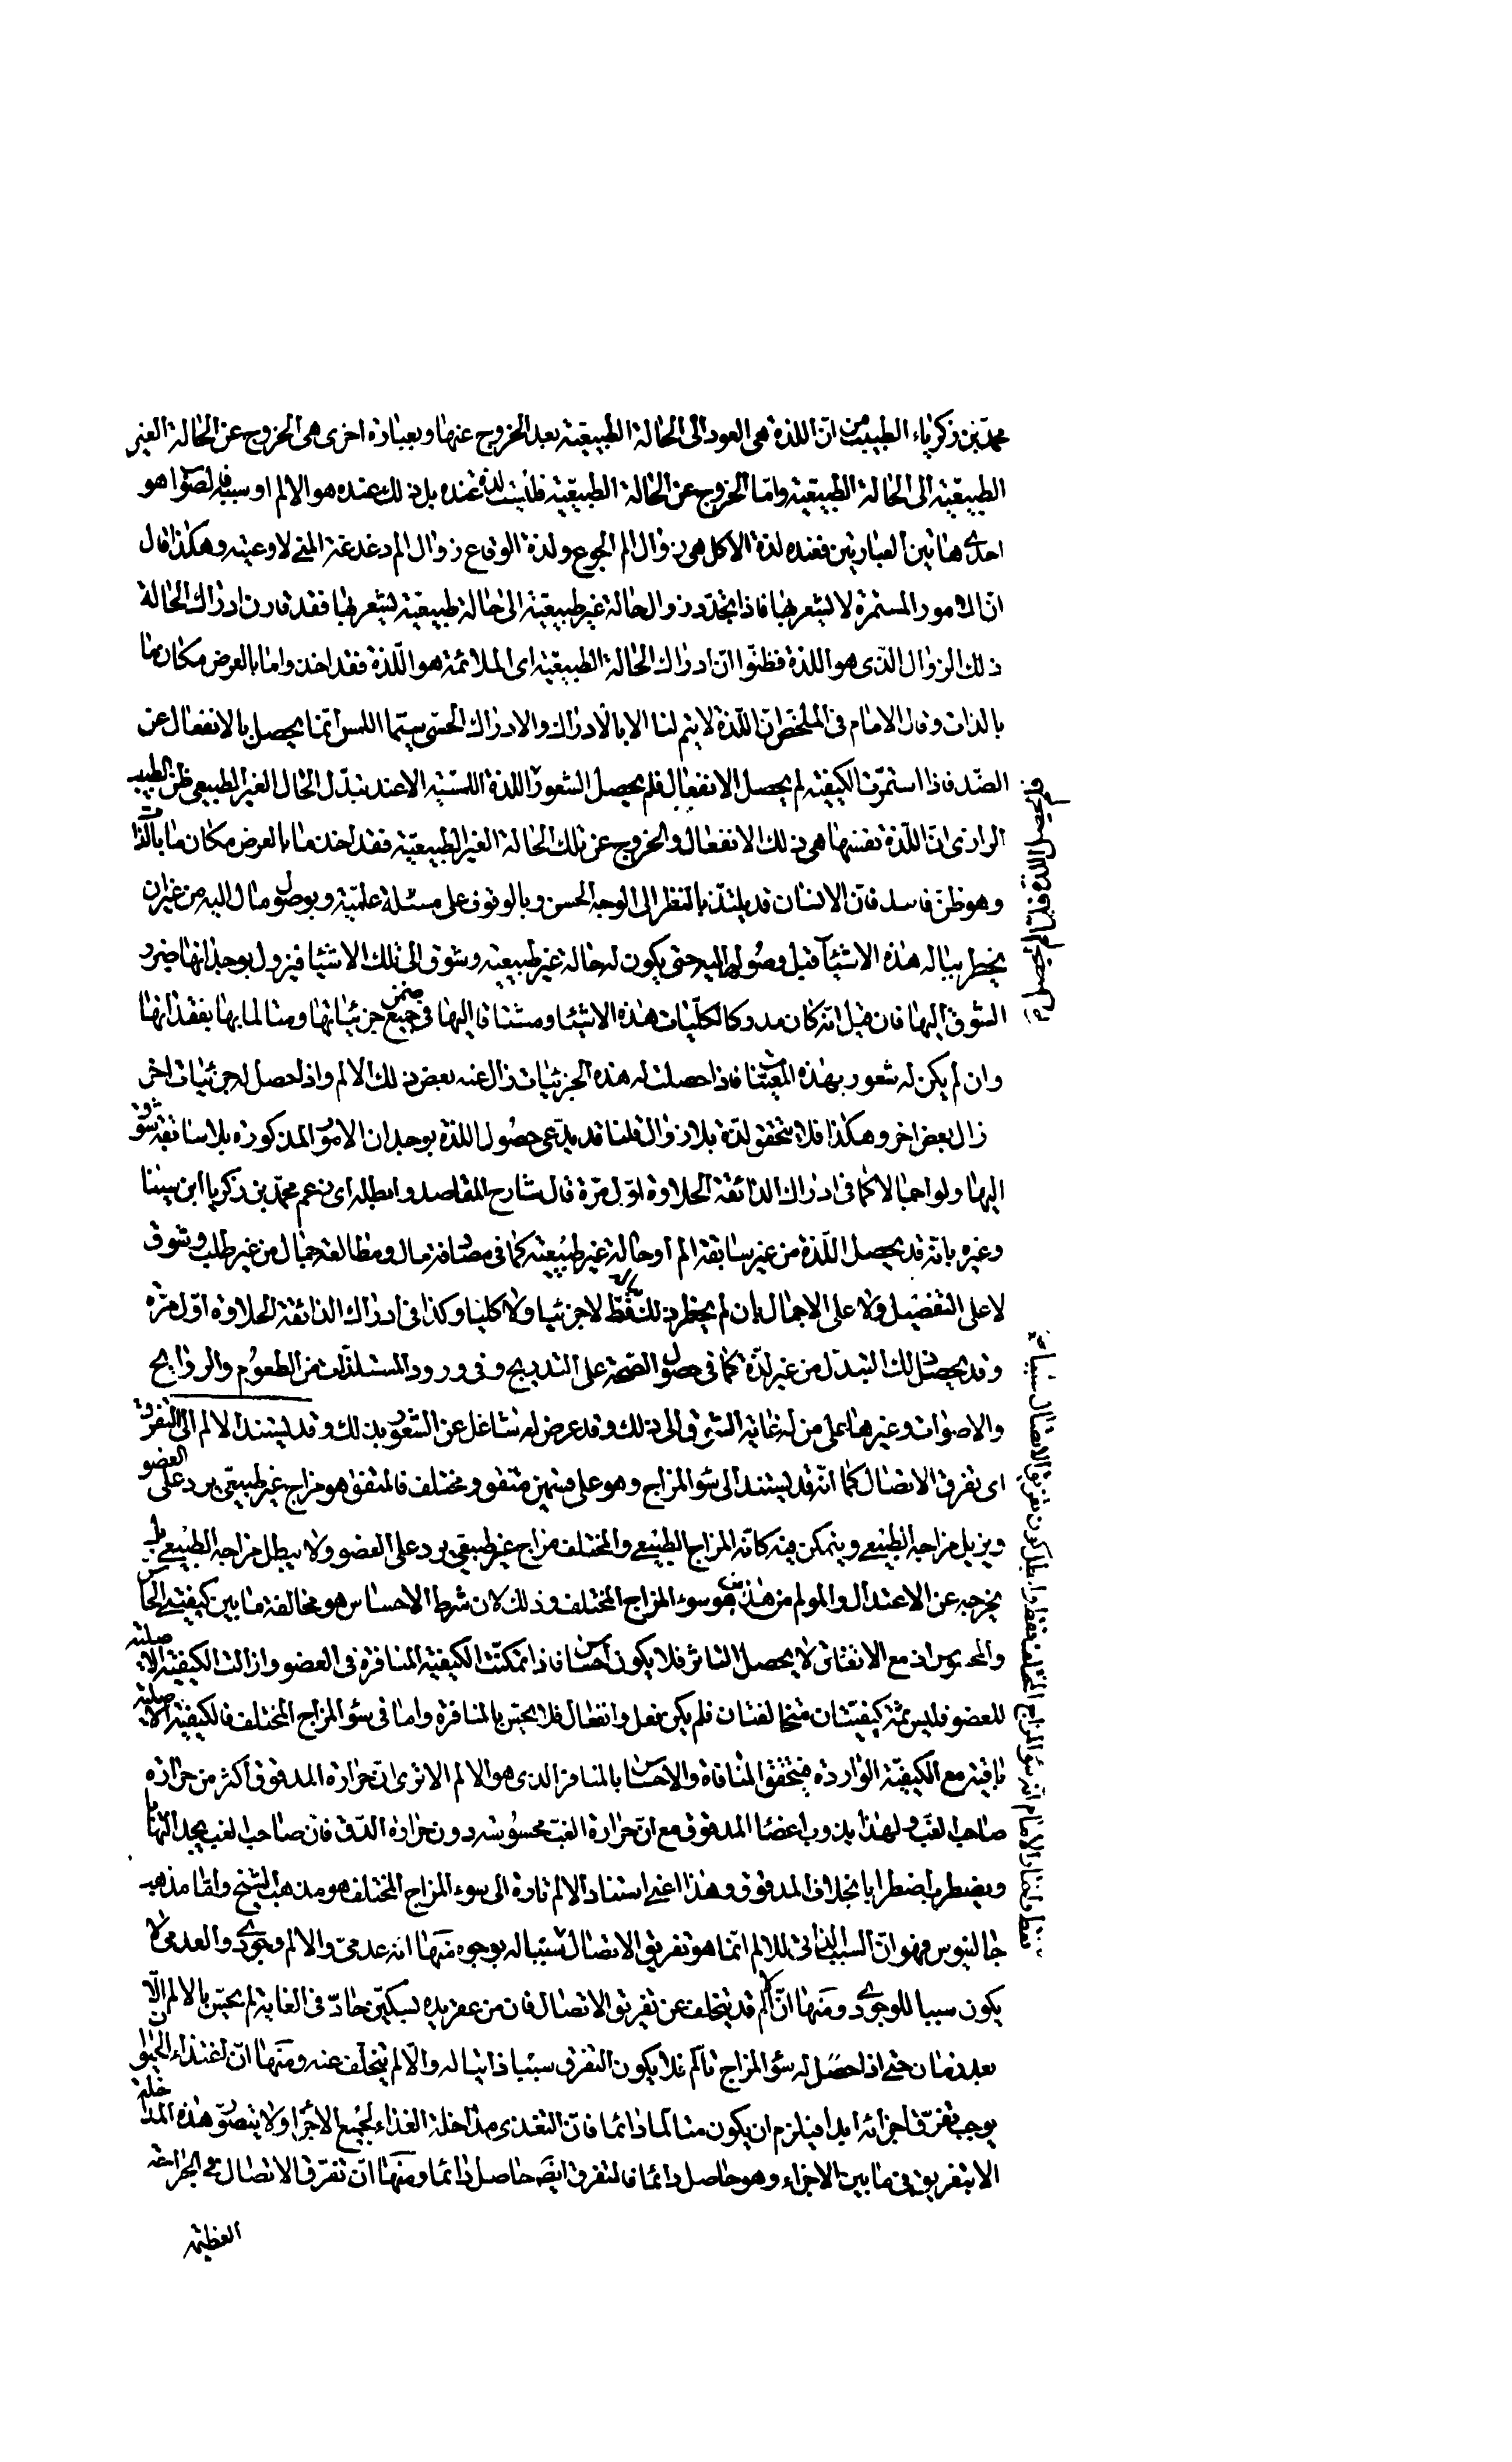 محمد بن زكرياء الطبيب من ان اللذة هى العود الى الحالة الطبيعية بعد الخروج عنها وبعبارة اخرى هى الخروج عن الحالة الغير
الطبيعية الى الحالة الطبيعية واما الخروج عن الحالة الطبيعية فليست لذة عنده بل ذلك عنده هو الالم او سببه فالصواب هو
احدى هاتين العبارتين فعنده لذة الاكل هى زوال الم الجوع ولذة الوقاع زوال الم دغدغة المنى لاوعيته وهكذا قال
ان الامور المستمرة لا يشعر بها فاذا تجدد زوال حالة غير طبيعية الى حالة طبيعية يشعر بها فقد قارن ادراك الحالة
ذلك الزوال الذى هو اللذة فظنوا ان ادراك الحالة الطبيعية اى الملائمة هو اللذة فقد اخذوا ما بالعرض مكان ما
بالذات وقال الامام فى الملخص ان اللذة لا يتم لنا الا بالادراك والادراك الحسى سيما اللمس انما يحصل بالانفعال عن
الضد فاذا استمرت الكيفية لم يحصل الانفعال فلم يحصل الشعور فاللذة اللمسية الا عند تبدل الحال الغير الطبيعى ظن الطبيب
الرازى ان اللذة نفسها هى ذلك الانفعال والخروج عن تلك الحالة الغير الطبيعية فقد اخذ ما بالعرض مكان ما بالذات
وهو ظن فاسد فان الانسان قد يلتذ بالنظر الى الوجه الحسن وبالوقوف على مسئلة علمية وبوصول مال اليه من غير ان
يخطر بباله هذه الاشياء قبل وصولها اليه حتى يكون له حالة غير طبيعية وشوق الى تلك الاشياء فيزول بوجدانها ضرر
الشوق اليها فان قيل انه كان مدركا لكليات هذه الاشياء ومشتاقا اليها فى ضمن جميع جزئياتها ومتالما بها بفقدانها
وان لم يكن له شعور بهذه المعينات فاذا حصلت له هذه الجزئيات زال عنه بعض ذلك الالم واذا حصل له جزئيات اخر
زال بعض اخر وهكذا فلا يتحقق لذة بلا زوال قلنا قد يدعى حصول اللذة بوجدان الامور المذكورة بلا سابقة شوق
اليها ولو اجمالا كما فى ادراك الذائقة الحلاوة اول مرة قال شارح المقاصد وابطله اى زعم محمد بن زكريا ابن سينا
وغيره بانه قد يحصل اللذة من غير سابقة الم او حالة غير طبيعية كما فى مصادفة مال ومطالعة جمال من غير طلب وشوق
لا على التفصيل ولا على الاجمال بان لم يخطر ذلك بباله قط لا جزئيا ولا كليا وكذا فى ادراك الذائقة الحلاوة اول مرة
وقد يحصل ذلك التبدل من غير لذة كما فى حصول الصحة على التدريج وفى ورود المستلذات من الطعوم والروايح
والاصوات وغيرها على من له غاية الشوق الى ذلك وقد عرض له شاغل عن الشعور بذلك وقد يستند الالم الى التفرق
اى تفرق الاتصال كما انه قد يستند الى سوء المزاج وهو على قسمين متفق ومختلف فالمتفق هو مزاج غير طبيعى يرد على العضو
ويزيل مزاجه الطبيعى ويتمكن فيه كانه المزاج الطبيعى والمختلف مزاج غير طبيعى يرد على العضو ولا يبطل مزاجه الطبيعى بل
يخرجه عن الاعتدال والمولم من هذين هو سوء المزاج المختلف وذلك لان شرط الاحساس هو مخالفة ما بين كيفيتى الحاس
والمحسوس اذ مع الاتفاق لا يحصل التاثر فلا يكون احساس فاذا تمكنت الكيفية المنافرة فى العضو وازالت الكيفية الاصلية
للعضو فليس ثمة كيفيتان متخالفتان فلم يكن فعل وانفعال فلا يحس بالمنافرة واما فى سوء المزاج المختلف فالكيفية الاصلية
باقية مع الكيفية الواردة فيتحقق المنافاة والاحساس بالمنافر الذى هو الالم الا ترى ان حرارة المدقوق اكثر من حرارة
صاحب الغب ولهذا يذوب اعضاء المدقوق مع ان حرارة الغب محسوسة دون حرارة الدق فان صاحب الغب يجد التهابا
ويضطرب اضطرابا بخلاف المدقوق وهذا اعنى استناد الالم تارة الى سوء المزاج المختلف هو مذهب الشيخ واما مذهب
جالينوس فهو ان السبب الذاتى للالم انما هو تفريق الاتصال بوجوه منها انه عدمى والالم وجودى والعدمى لا
يكون سببا للوجودى ومنها ان الالم قد يتخلف عن تفريق الاتصال فان من عقر يده بسكين حاد فى الغاية لم يحس بالالم الا
بعد زمان حتى اذا حصل له سوء المزاج تالم فلا يكون التفرق سببا ذاتيا له والا لم يتخلف عنه ومنها ان اغتذاء الحيوان
يوجب تفرق اجزائه ابدا فيلزم ان يكون متالما دائما فان التغذى مداخلة الغذاء لجميع الاجزاء ولا يتصور هذه المداخلة
الا بتفريق فى ما بين الاجزاء وهو حاصل دائما فالتفرق ايضا حاصل دائما ومنها ان تفرق الاتصال فى الجراحة
العظيمة